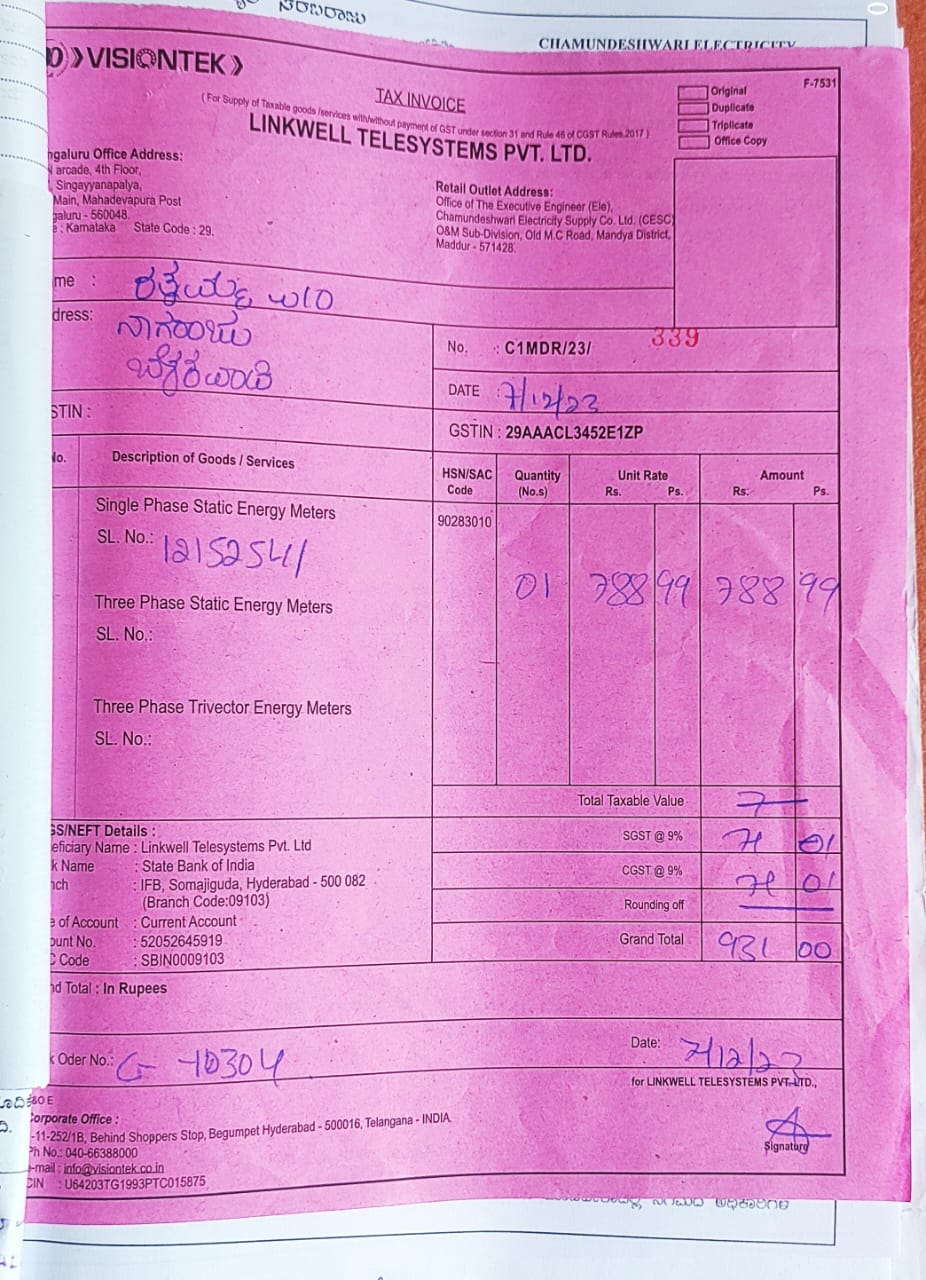 VISIONTEK
CHAMUNDESHWARI ELECTRICITY
F-7531
TAX INVOICE
( For Supply of Taxable goods /services with/without payment of GST under section 31 and Rule 46 of CGST Rules.2017 )
LINKWELL TELESYSTEMS PVT. LTD.
Original
Duplicate
Triplicate
Office Copy
ngaluru Office Address:
arcade, 4th Floor,
Singayyanapalya,
Main, Mahadevapura Post
galuru - 560048.
: Karnataka State Code : 29.
Retail Outlet Address:
Office of The Executive Engineer (Ele),
Chamundeshwari Electricity Supply Co. Ltd. (CESC)
O&M Sub-Division, Old M.C Road, Mandya District,
Maddur - 571428.
me :
dress:
No. : C1MDR/23/ 339
DATE : 7/12/23
STIN :
GSTIN : 29AAACL3452E1ZP
No. Description of Goods / Services HSN/SAC Code Quantity (No.s) Unit Rate Rs. Ps. Amount Rs. Ps.
Single Phase Static Energy Meters 90283010
SL. No.: 12152541
01 788 99 788 99
Three Phase Static Energy Meters
SL. No.:
Three Phase Trivector Energy Meters
SL. No.:
Total Taxable Value
SGST @ 9% 71 01
CGST @ 9% 71 01
Rounding off
Grand Total 931 00
GS/NEFT Details :
eficiary Name : Linkwell Telesystems Pvt. Ltd
k Name : State Bank of India
nch : IFB, Somajiguda, Hyderabad - 500 082
(Branch Code:09103)
e of Account : Current Account
ount No. : 52052645919
C Code : SBIN0009103
nd Total : In Rupees
k Oder No.: G-10304
Date: 7/12/23
for LINKWELL TELESYSTEMS PVT. LTD.,
Signature
Corporate Office :
-11-252/1B, Behind Shoppers Stop, Begumpet Hyderabad - 500016, Telangana - INDIA.
Ph No.: 040-66388000
e-mail : info@visiontek.co.in
CIN : U64203TG1993PTC015875